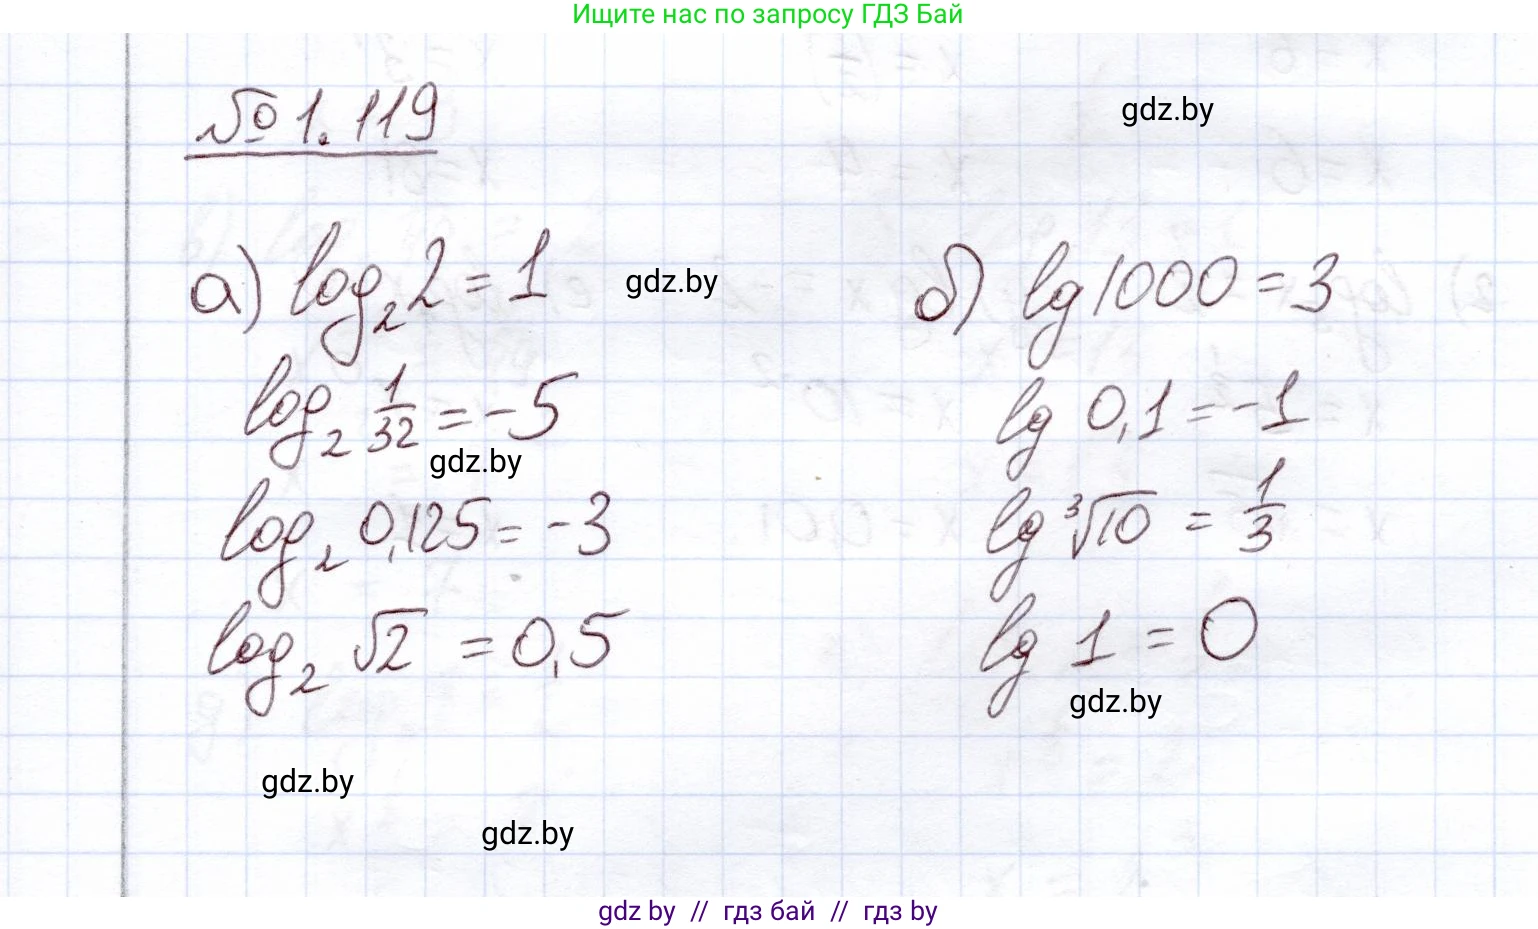 Ищите нас по запросу ГДЗ Бай
№ 1.119
gdz.by
а) log₂ 2 = 1
gdz.by
log₂ 1/32 = -5
gdz.by
log₂ 0,125 = -3
log₂ √2 = 0,5
б) lg 1000 = 3
lg 0,1 = -1
lg ∛10 = 1/3
lg 1 = 0
gdz.by
gdz.by
gdz.by
gdz by // гдз бай // гдз by